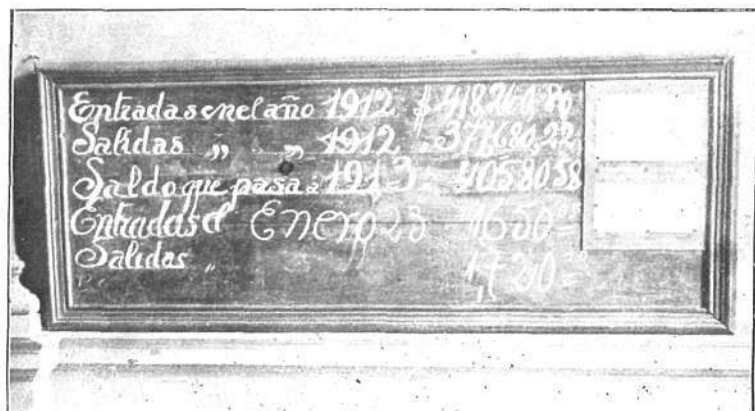 Entradas en el año 1912 $ 418260.80
Salidas „ „ 1912 „ 377680.22
Saldo que pasa á 1913 „ 40580.58
Entradas el Enero 23 1650
Salidas „ 1,720